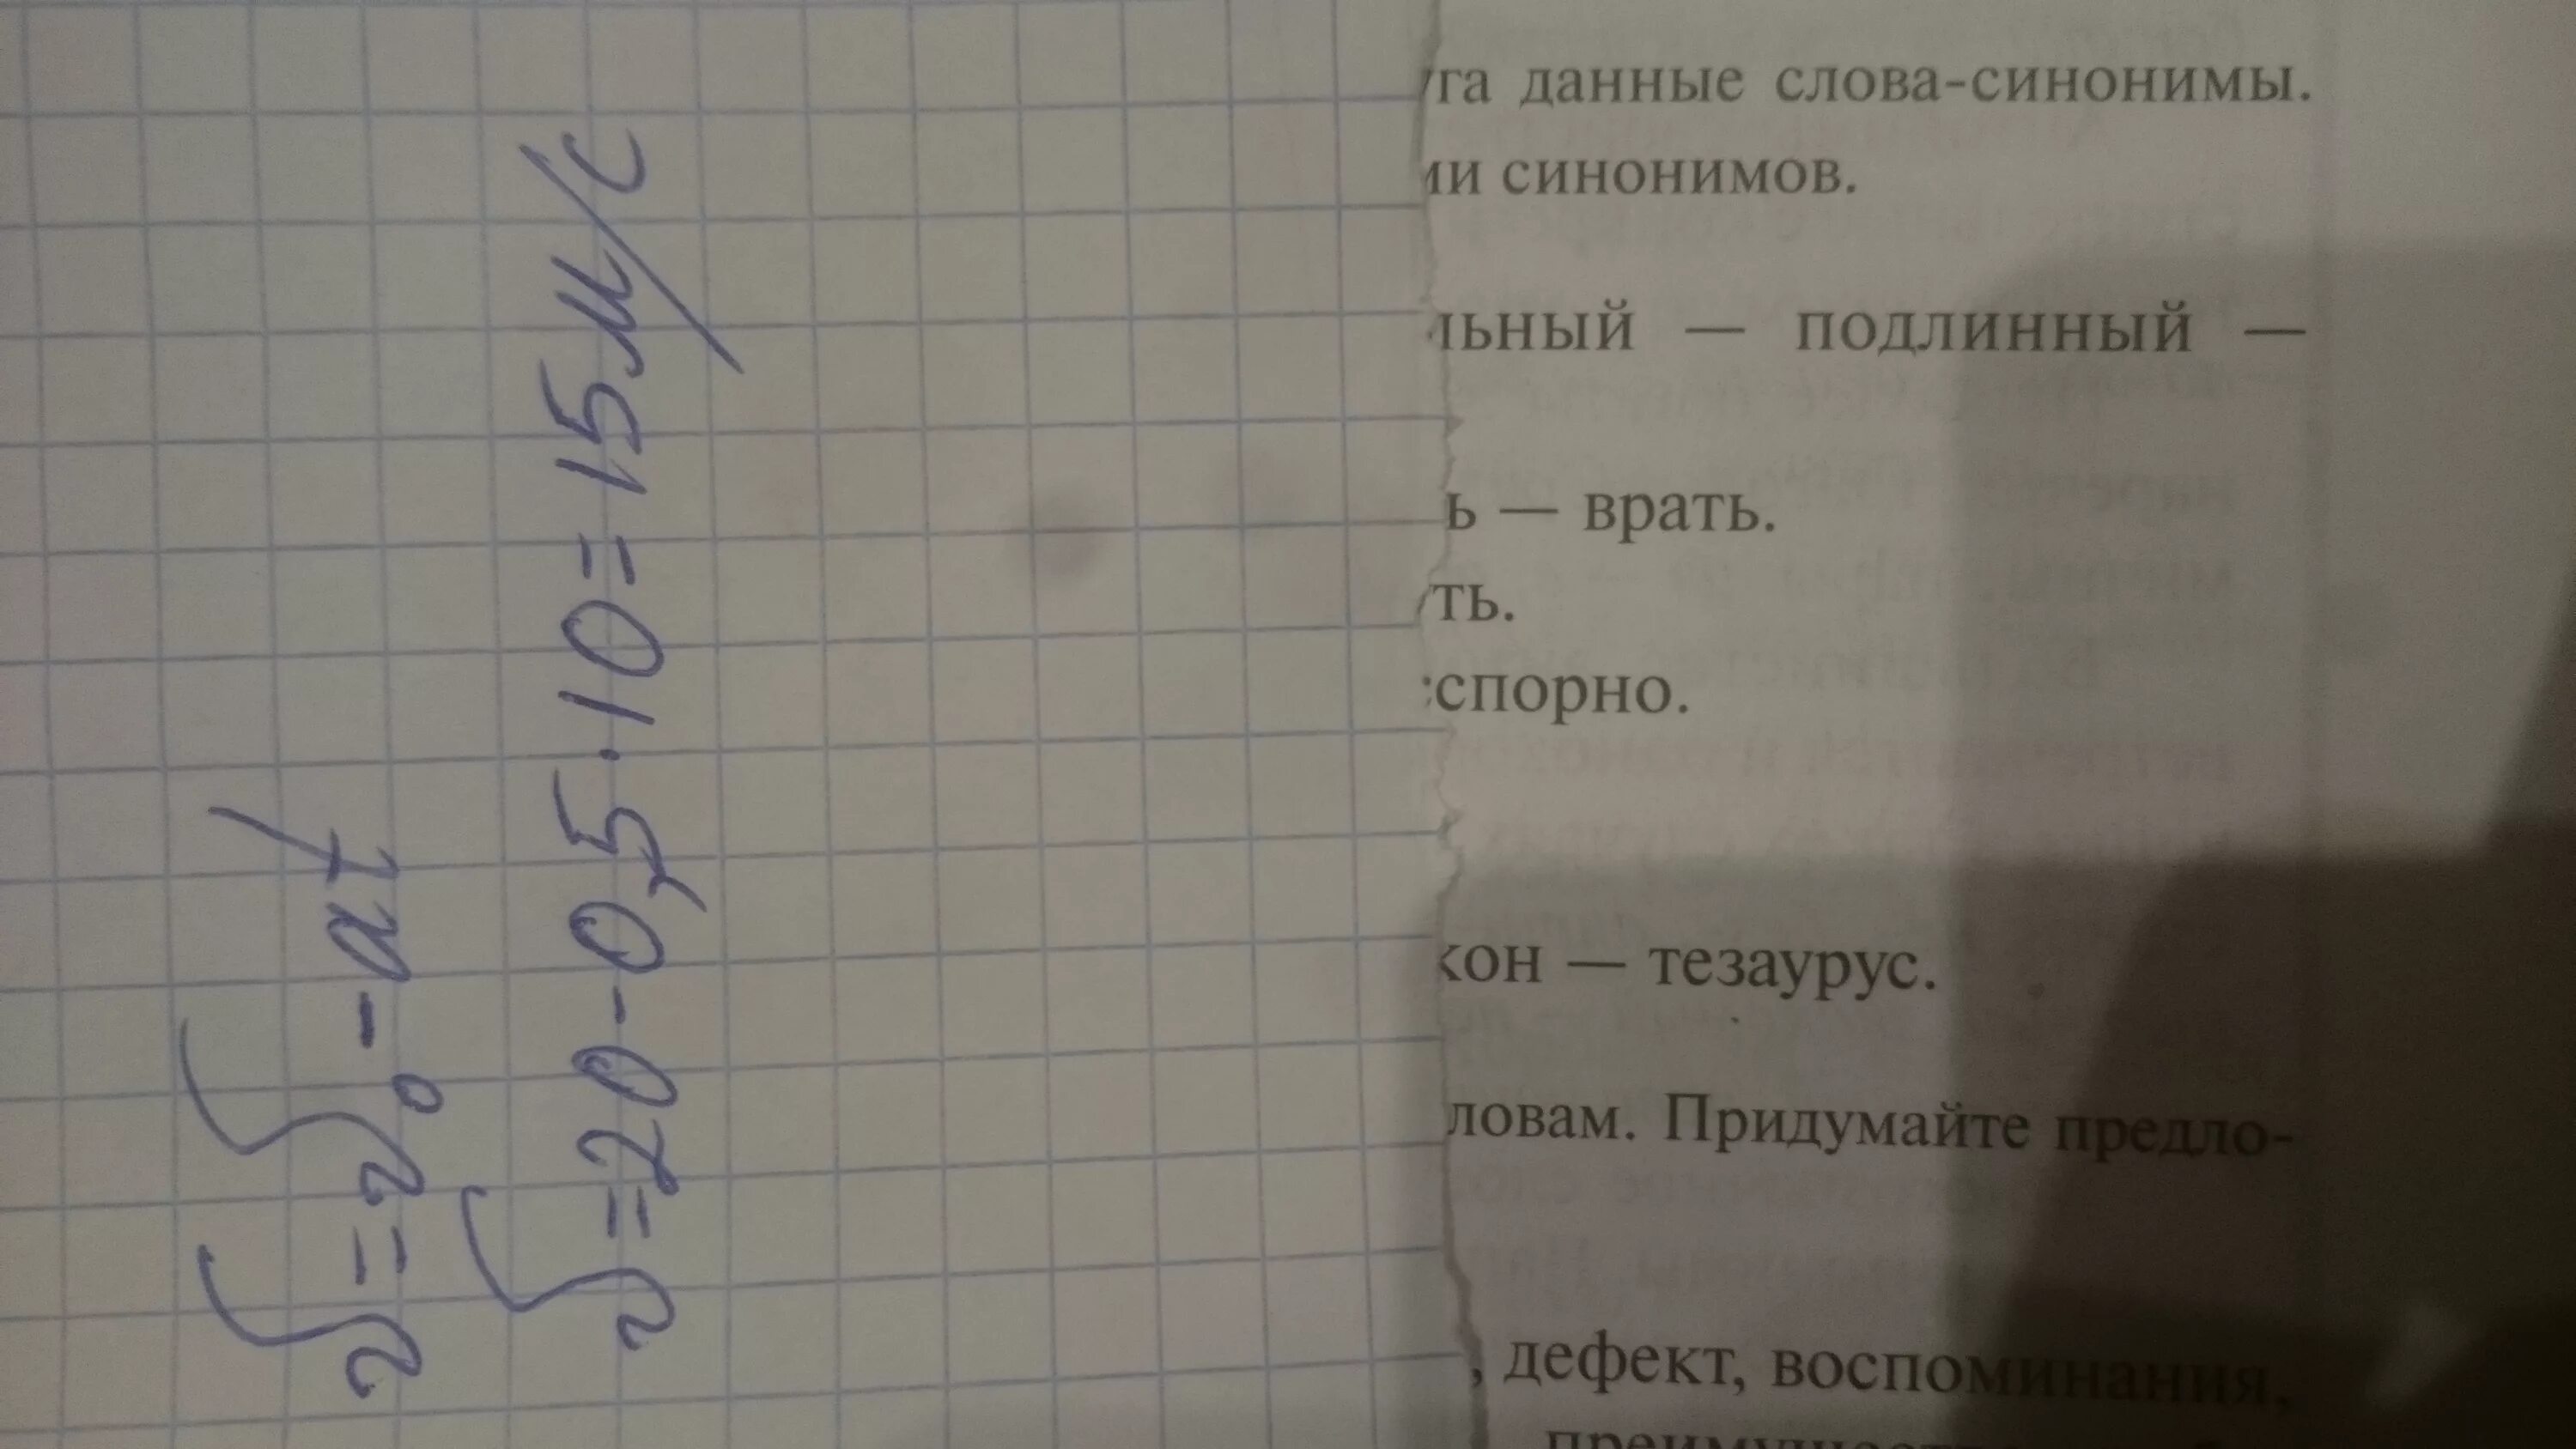 υ=υ₀-at
υ=20-0,5·10=15м/с
уга данные слова-синонимы.
ми синонимов.
льный — подлинный —
ь — врать.
ть.
спорно.
кон — тезаурус.
ловам. Придумайте предло-
, дефект, воспоминания,